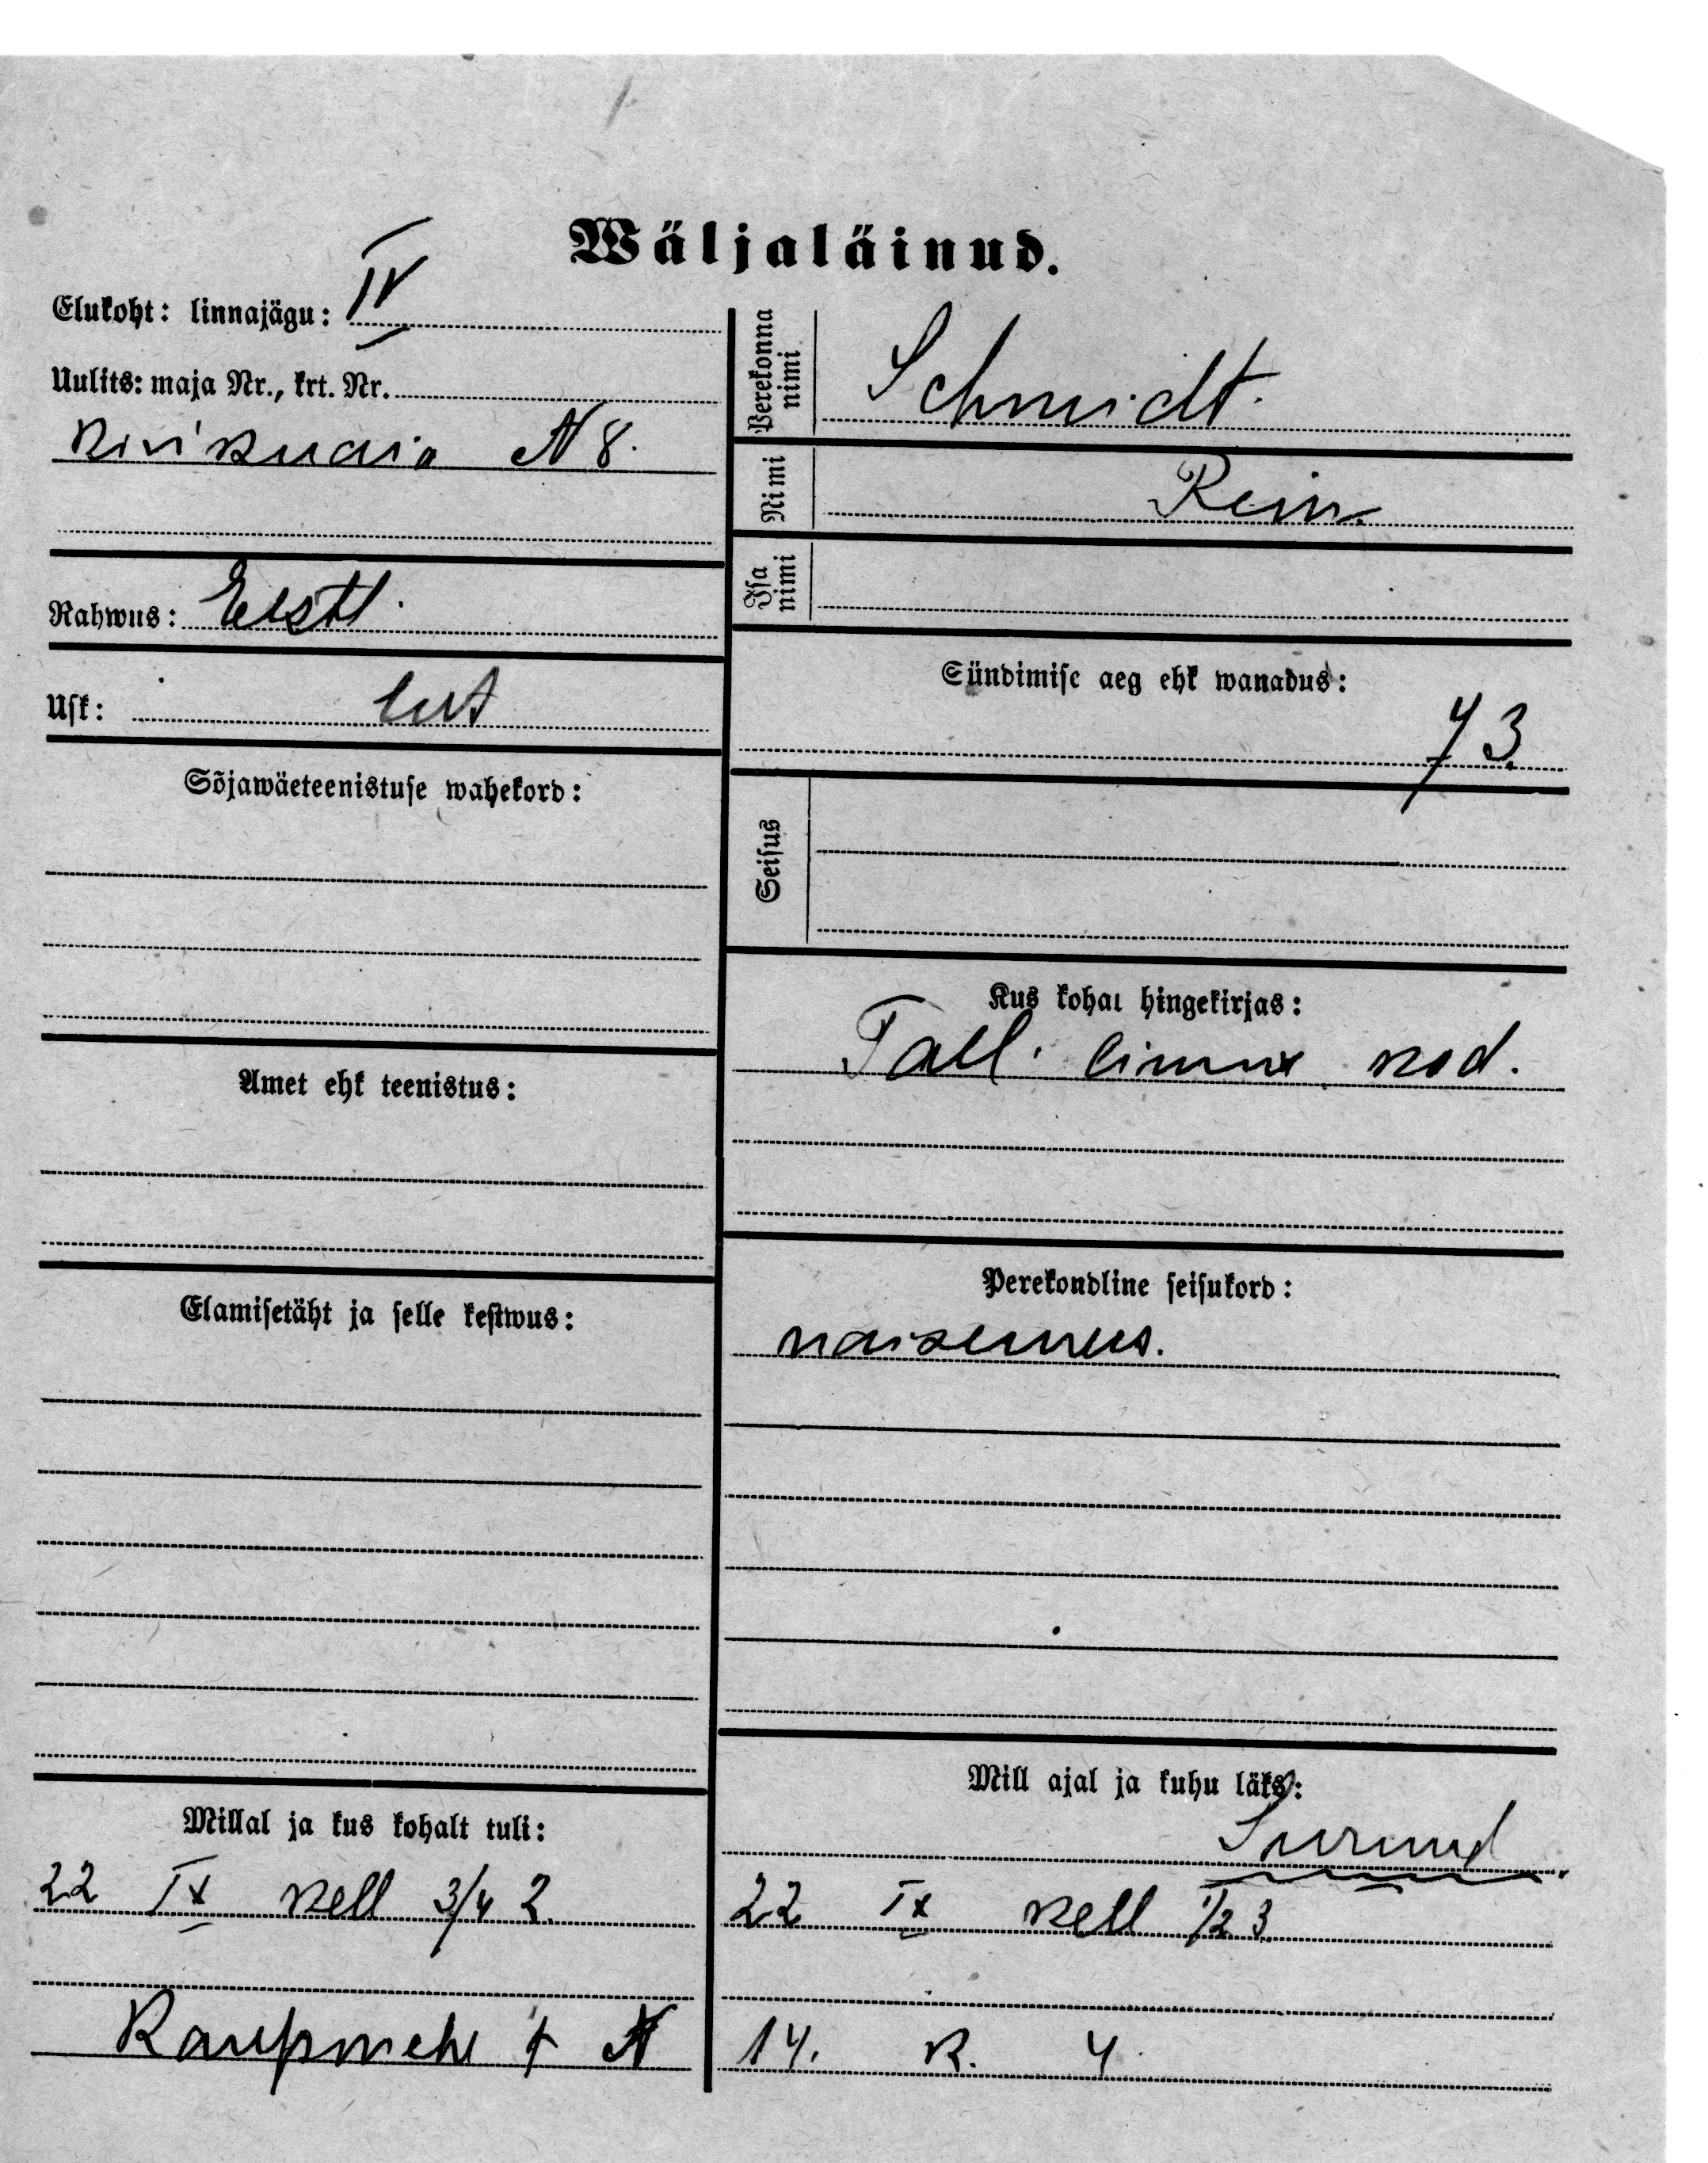 Wäljaläinud.
Elukoht: linnajägu: IV
Uulits: maja Nr., krt. Nr.
Kivikuaia N 8.
Rahwus: Eestl.
Usk: lut
Sõjawäeteenistuse wahekord:
Amet ehk teenistus:
Elamisetäht ja selle kestwus:
Millal ja kus kohalt tuli:
22 IX kell 3/4 2.
Kaupmehe t N
Perekonna nimi Schmidt.
Nimi Rein.
Isa nimi
Sündimise aeg ehk wanadus:
73.
Seisus
Kus kohal hingekirjas:
Tall. linna kod.
Perekondline seisukord:
naisemees.
Mill ajal ja kuhu läks:
Surnud.
22 IX kell 1/2 3
14. K. 4.